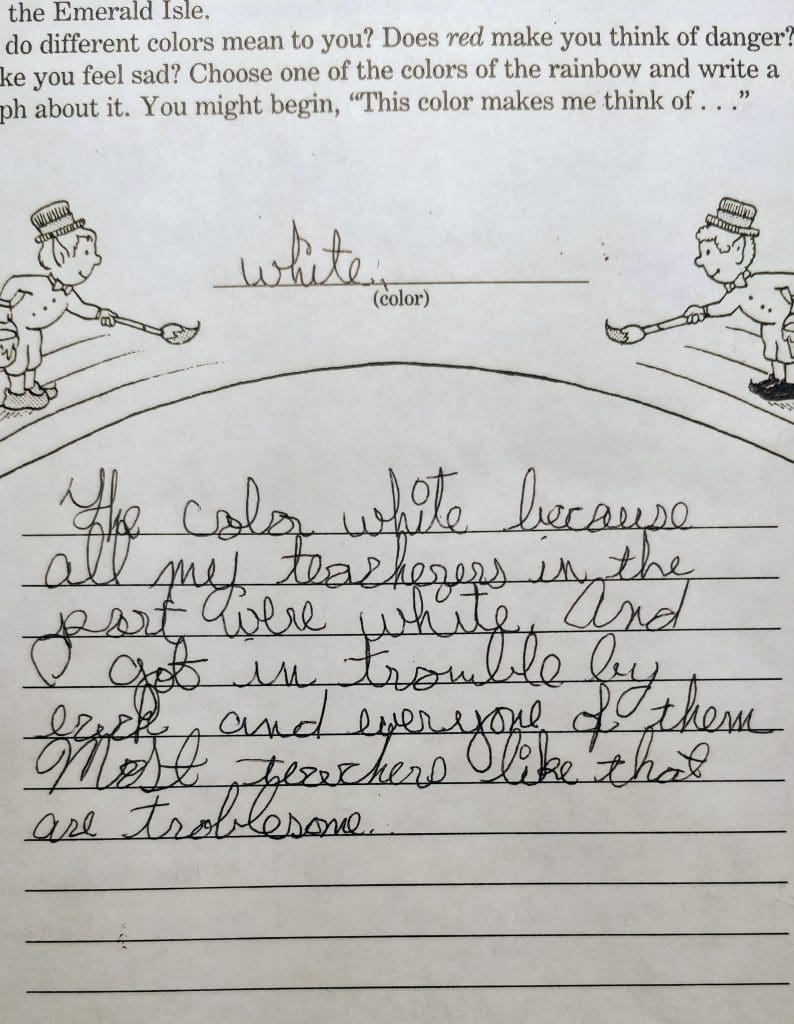 the Emerald Isle.
do different colors mean to you? Does red make you think of danger?
ke you feel sad? Choose one of the colors of the rainbow and write a
ph about it. You might begin, “This color makes me think of . . .”
white.
(color)
The color white because
all my teacherers in the
part were white. And
I got in trouble by
each and everyone of them
Most teachers like that
are troblesome.